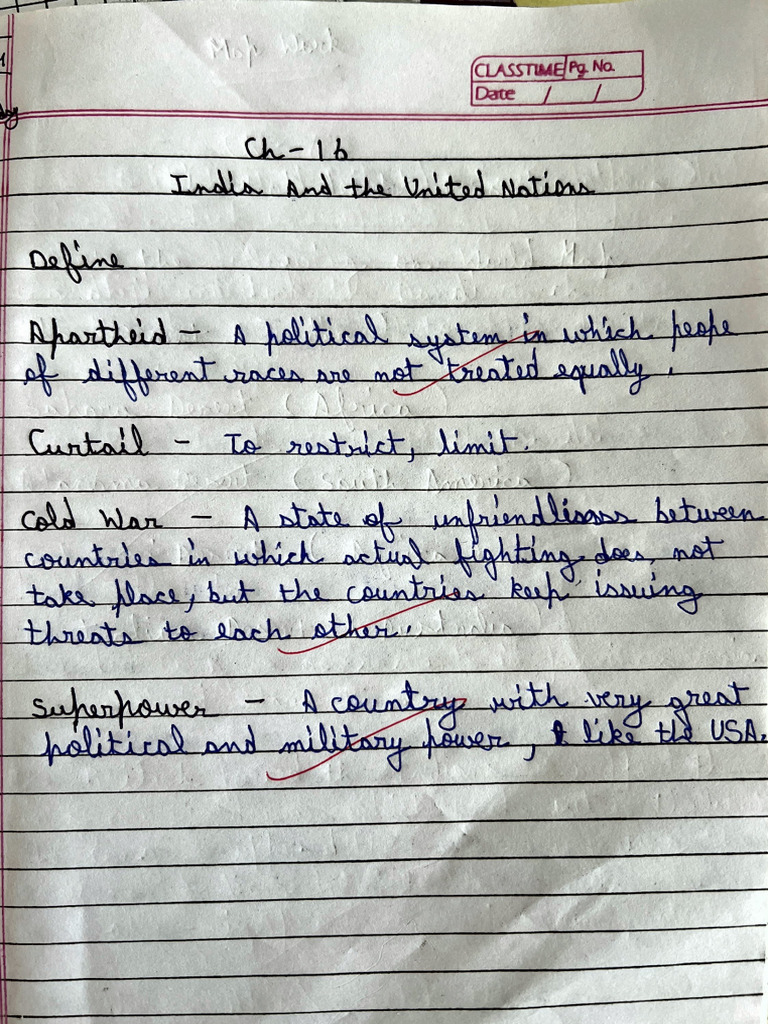 CLASSTIME Pg. No.
Date / /
Ch - 16
India And the United Nations
Define
Apartheid - A political system in which peope
of different races are not treated equally.
Curtail - To restrict, limit.
Cold War - A state of unfriendliness between
countries in which actual fighting does not
take place, but the countries keep issuing
threats to each other.
Superpower - A country with very great
political and military power, like the USA.